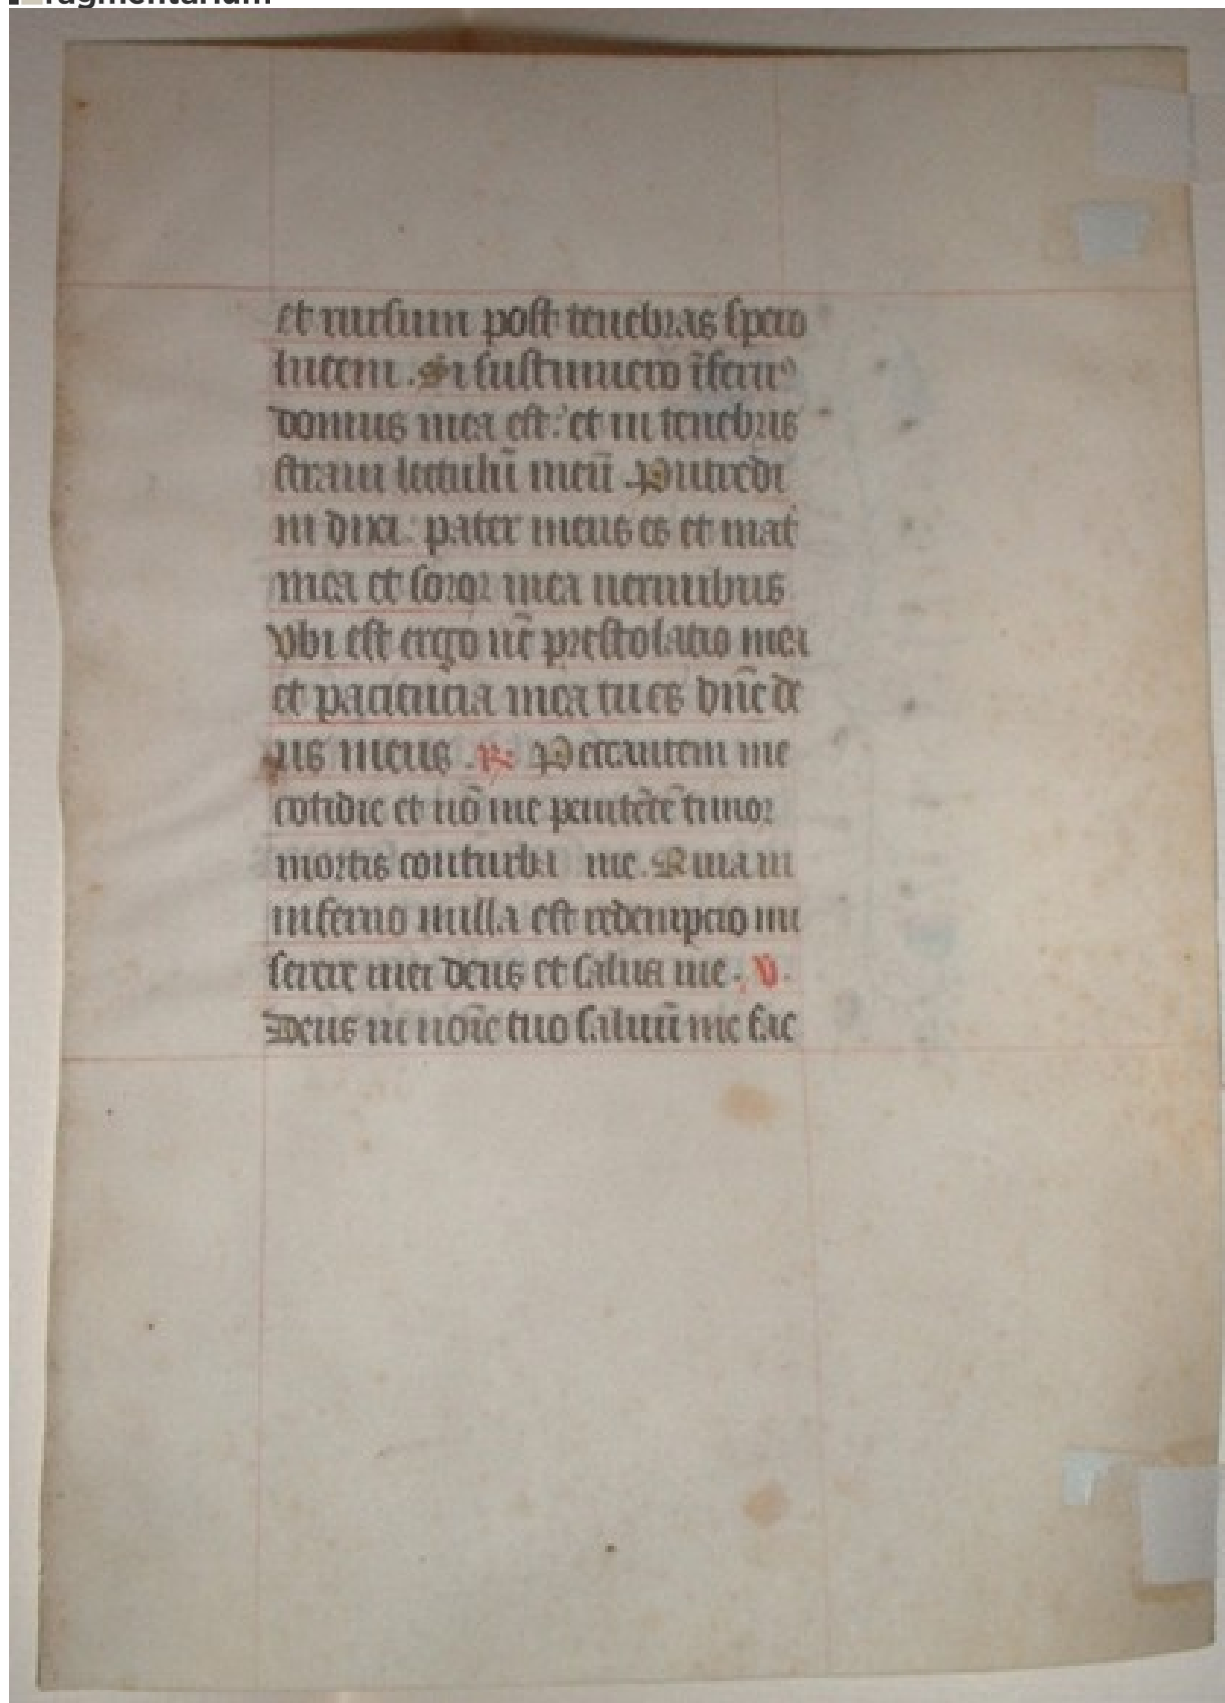 ragmentarium
et rursum post tenebras spero
lucem . Si sustinuero īferꝰ
domus mea est : et in tenebris
straui lectulū meū . Putredi
ni dixi : pater meus es et mat̾
mea et soror mea uermibus
Vbi est ergo nc̄ prestolatio mea
et paciencia mea tu es dn̄e de
us meus . R. Peccantem me
cotidie et nō me penitētē timor
mortis conturba me . Quia in
inferno nulla est redempcio mi
serere mei deus et salua me . V.
Deus in noīe tuo saluū me fac